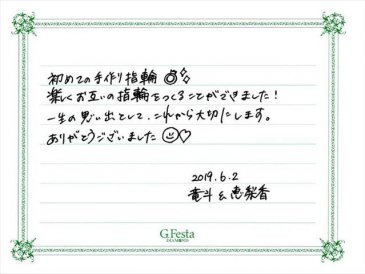 初めての手作り指輪
楽しくお互いの指輪をつくることができました！
一生の思い出として、これから大切にします。
ありがとうございました
2019.6.2
竜斗 & 恵梨香
G.Festa
DIAMOND